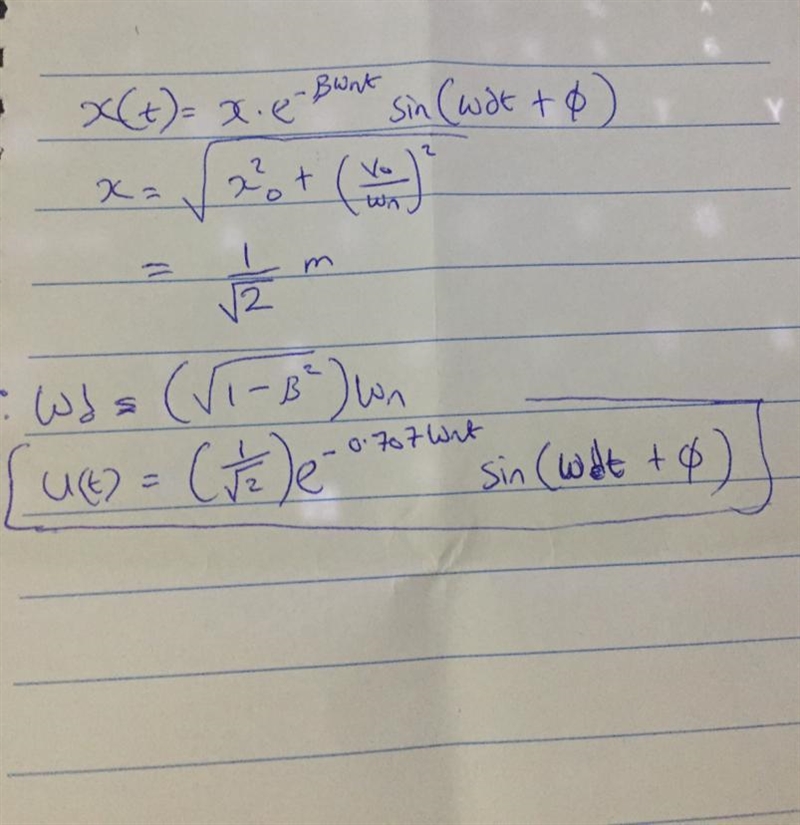 x(t) = x.e^{-βωnt} sin(ωdt + φ)
x = √(x₀² + (v₀/ωn)²)
= 1/√2 m
: ωd = (√(1-β²))ωn
u(t) = (1/√2)e^{-0.707ωnt} sin(ωdt + φ)